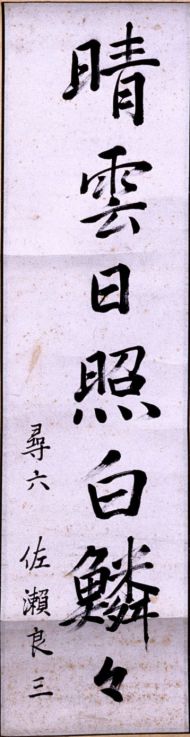 晴雲日照白鱗々
尋六 佐瀬良三